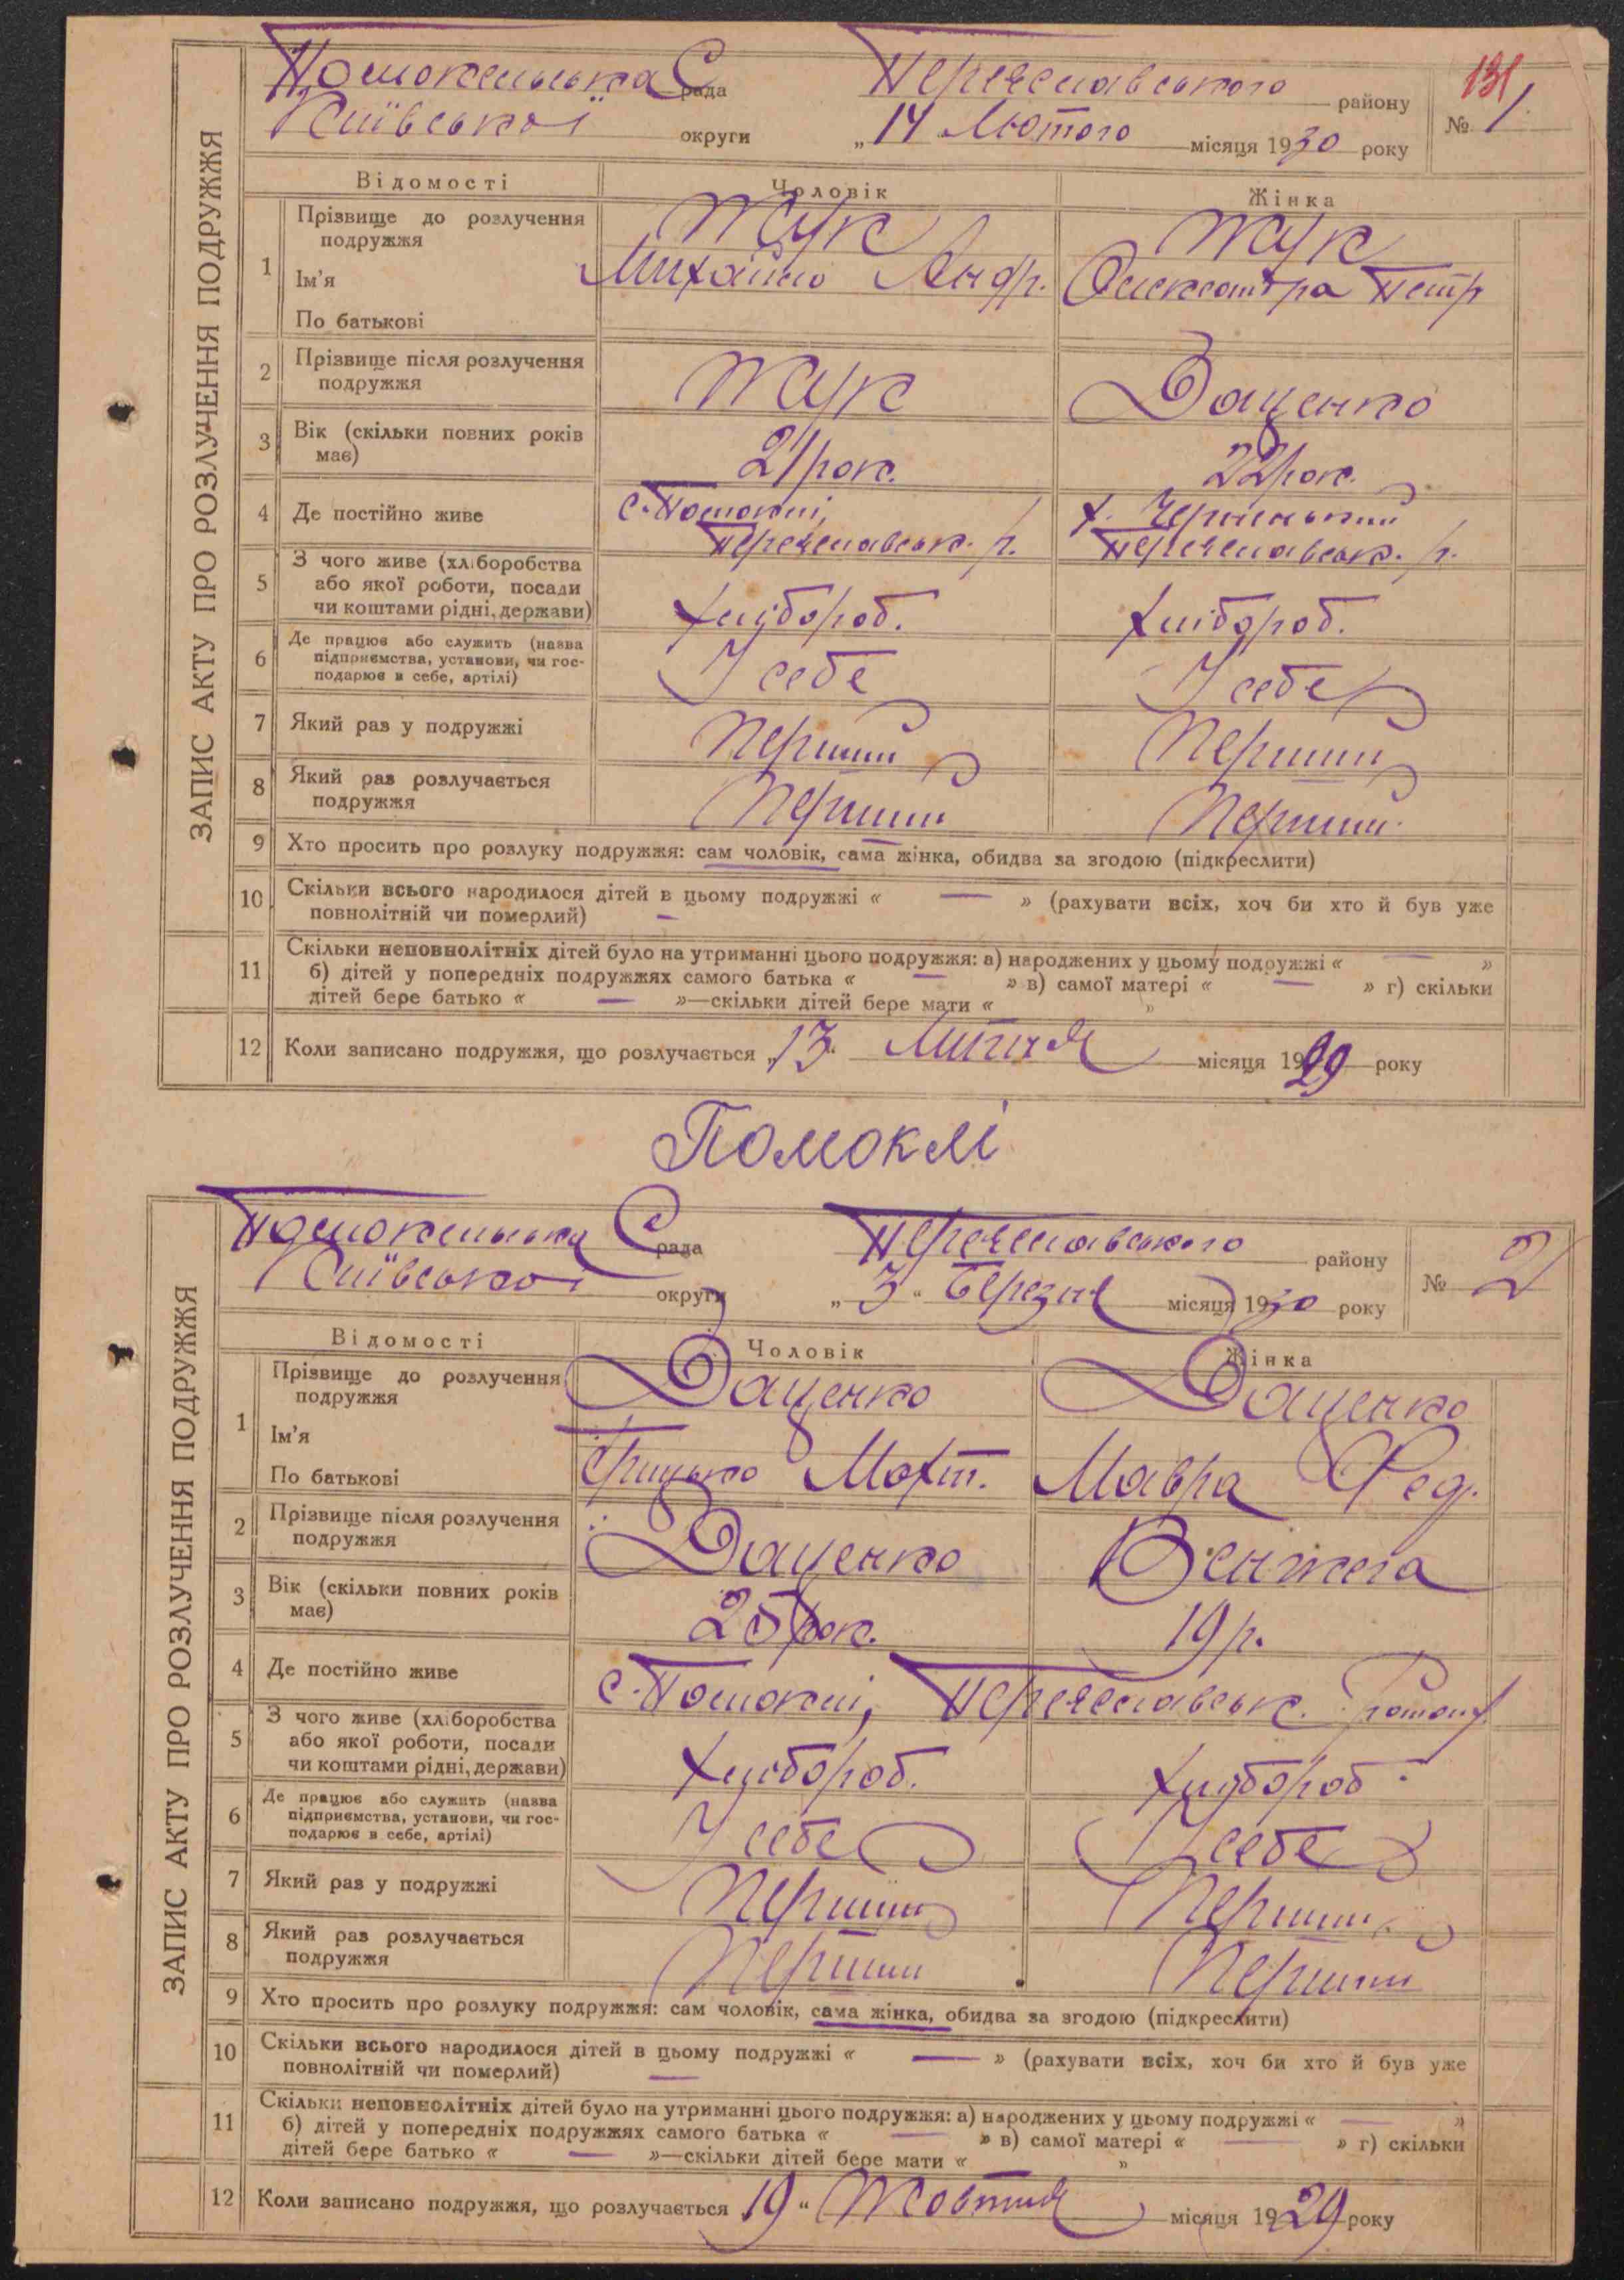 ЗАПИС АКТУ ПРО РОЗЛУЧЕННЯ ПОДРУЖЖЯ
Помокельська С рада Переяславського району
131
Київської округи „14 Лютого місяця 1930 року № 1
Відомості Чоловік Жінка
1 Прізвище до розлучення подружжя Жук Жук
Ім'я Михайло Андр. Олександра Петр
По батькові
2 Прізвище після розлучення подружжя Жук Даценко
3 Вік (скільки повних років має) 21 рок. 22 рок.
4 Де постійно живе с. Помоклі, Переяславськ. р. х. Переяславськ. р.
5 З чого живе (хліборобства або якої роботи, посади чи коштами рідні, держави) Хлібороб. Хлібороб.
6 Де працює або служить (назва підприємства, установи, чи господарює в себе, артілі) У себе У себе
7 Який раз у подружжі Перший Перший
8 Який раз розлучається подружжя Перший Перший
9 Хто просить про розлуку подружжя: сам чоловік, сама жінка, обидва за згодою (підкреслити)
10 Скільки всього народилося дітей в цьому подружжі « — » (рахувати всіх, хоч би хто й був уже
повнолітній чи померлий) —
11 Скільки неповнолітніх дітей було на утриманні цього подружжя: а) народжених у цьому подружжі « — »
б) дітей у попередніх подружжях самого батька « — » в) самої матері « — » г) скільки
дітей бере батько « — »—скільки дітей бере мати « »
12 Коли записано подружжя, що розлучається „13" Липня місяця 1929 року
Помоклі
ЗАПИС АКТУ ПРО РОЗЛУЧЕННЯ ПОДРУЖЖЯ
Помокельська С рада Переяславського району
Київської округи „3" Березня місяця 1930 року № 2
Відомості Чоловік Жінка
1 Прізвище до розлучення подружжя Даценко Даценко
Ім'я
По батькові Грицько Мавра Фед.
2 Прізвище після розлучення подружжя Даценко Венжега
3 Вік (скільки повних років має) рок. 19 р.
4 Де постійно живе с. Помоклі, Переяславськ.
5 З чого живе (хліборобства або якої роботи, посади чи коштами рідні, держави) Хлібороб. Хлібороб.
6 Де працює або служить (назва підприємства, установи, чи господарює в себе, артілі) У себе У себе
7 Який раз у подружжі Перший Перший
8 Який раз розлучається подружжя Перший Перший
9 Хто просить про розлуку подружжя: сам чоловік, сама жінка, обидва за згодою (підкреслити)
10 Скільки всього народилося дітей в цьому подружжі « — » (рахувати всіх, хоч би хто й був уже
повнолітній чи померлий) —
11 Скільки неповнолітніх дітей було на утриманні цього подружжя: а) народжених у цьому подружжі « — »
б) дітей у попередніх подружжях самого батька « — » в) самої матері « — » г) скільки
дітей бере батько « — »—скільки дітей бере мати « »
12 Коли записано подружжя, що розлучається 19 " Жовтня місяця 1929 року